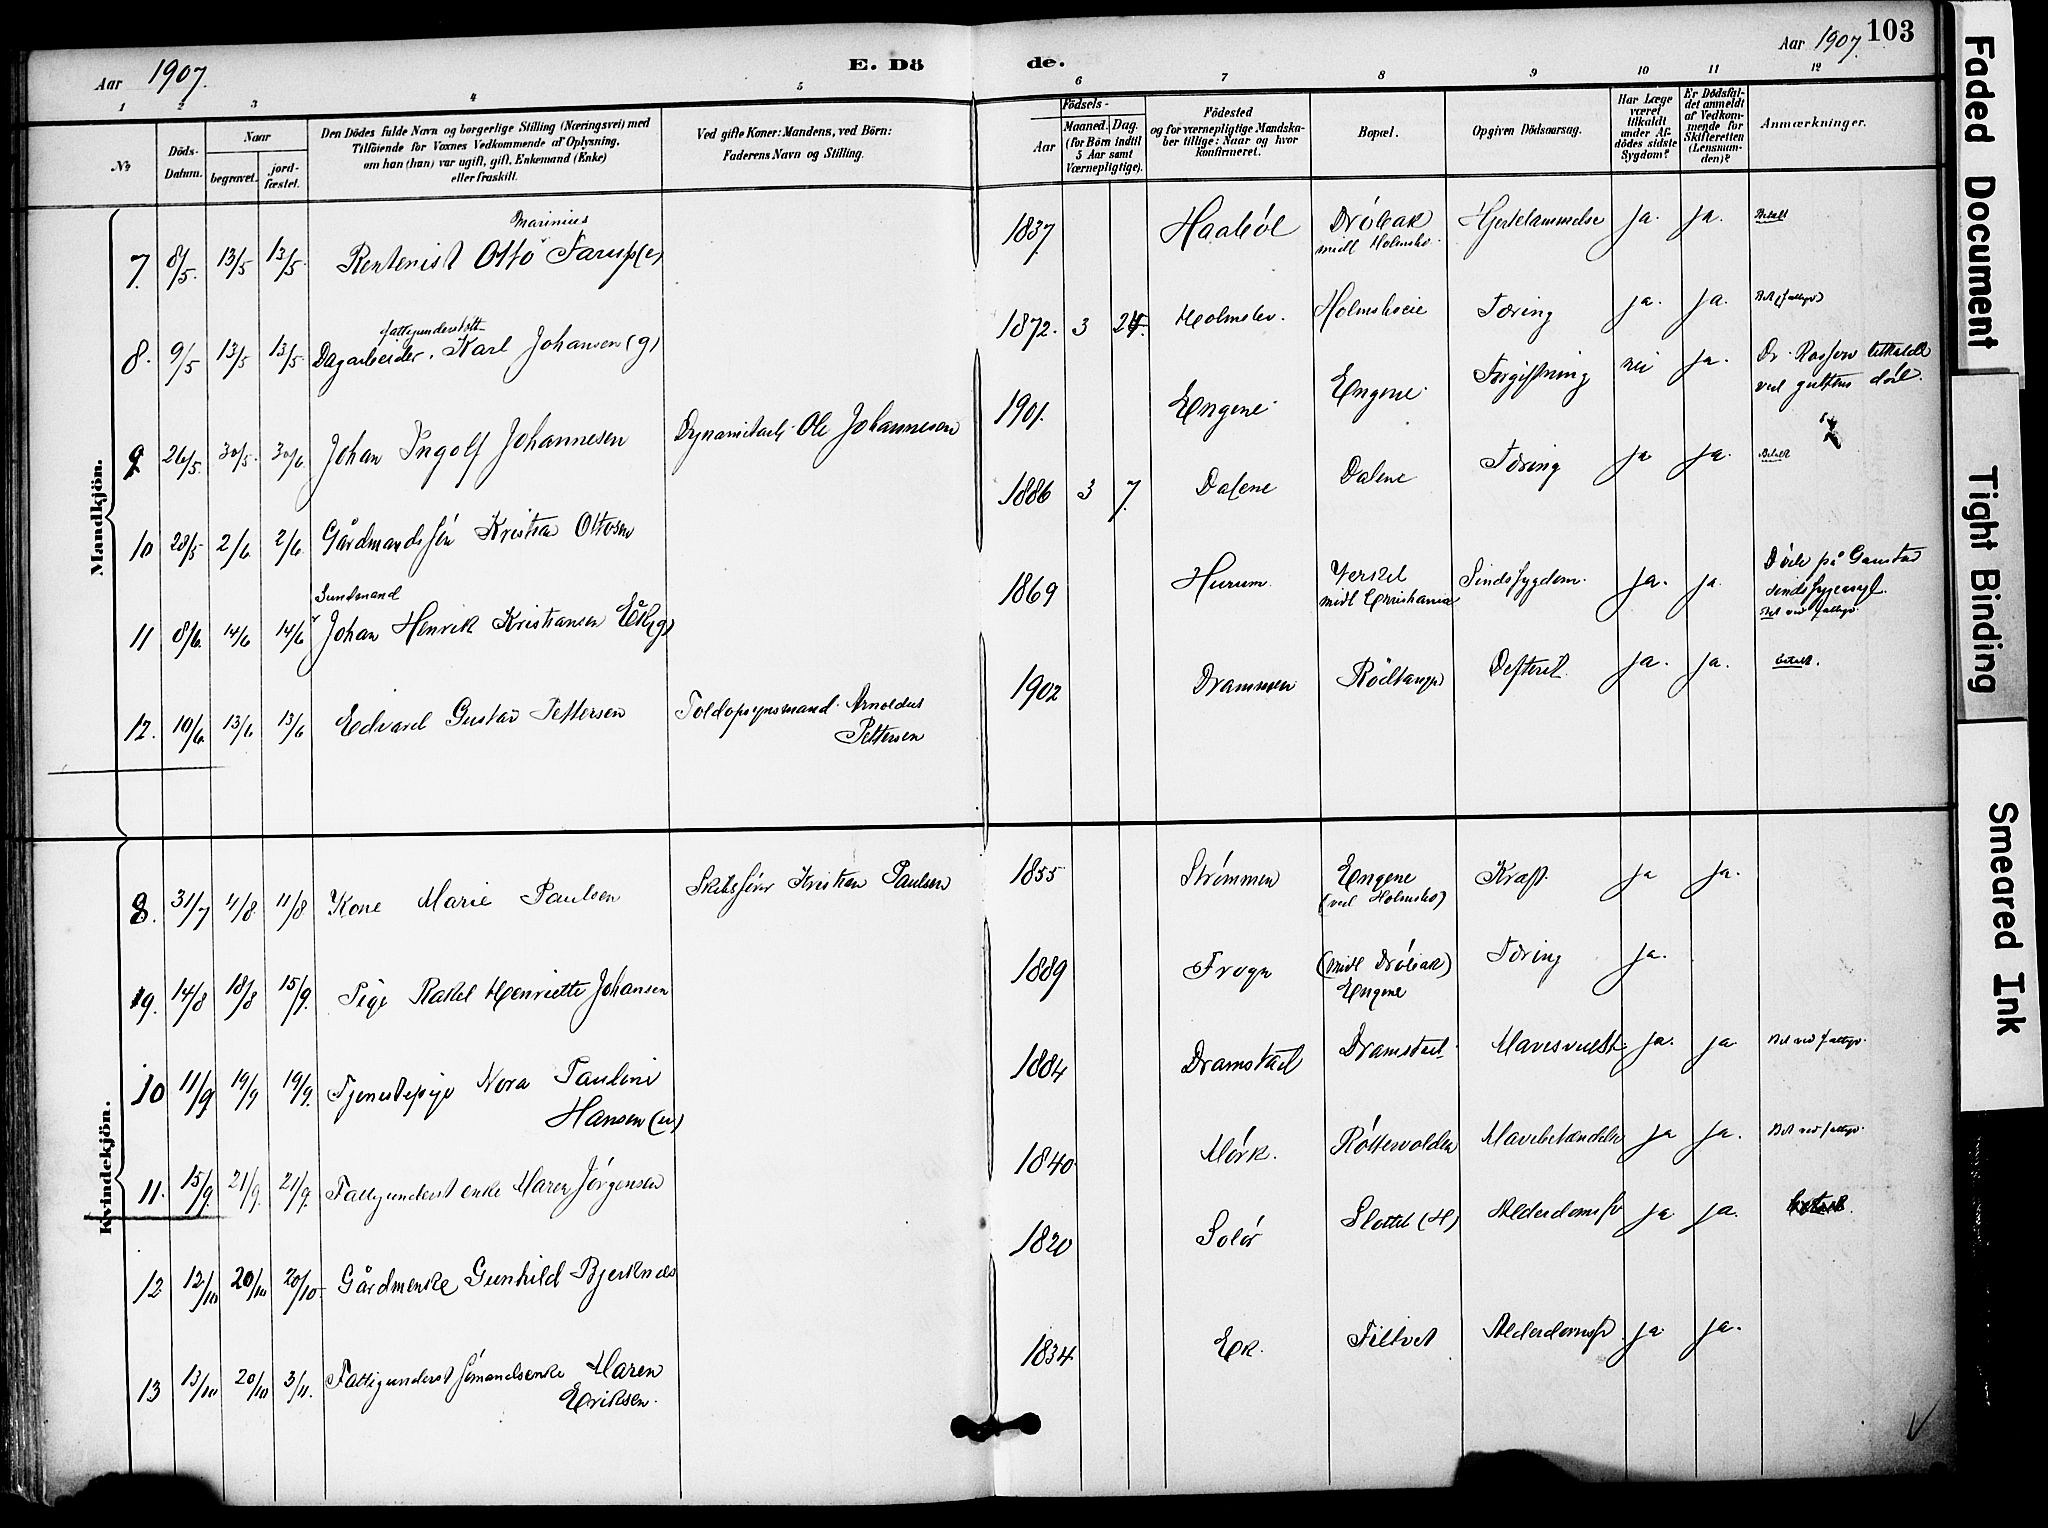 Aar 1907.
E. Dö
de.
Aar 1907.
103
1 2 3 4 5 6 7 8 9 10 11 12
No
Döds-Datum.
Naar
begravet.
jord-fæstet.
Den Dödes fulde Navn og borgerlige Stilling (Næringsvei) med
Tilföiende for Voxnes Vedkommende af Oplysning,
om han (hun) var ugift, gift, Enkemand (Enke)
eller fraskilt.
Ved gifte Koner: Mandens, ved Börn:
Faderens Navn og Stilling.
Födsels-
Aar
Maaned. Dag.
(for Börn indtil
5 Aar samt
Værnepligtige).
Födested
og for værnepligtige Mandska-
ber tillige: Naar og hvor
konfirmeret.
Bopæl.
Opgiven Dödsaarsag.
Har Læge
været
tilkaldt
under Af-
dödes sidste
Sygdom?
Er Dödsfal-
det anmeldt
af Vedkom-
mende for
Skifteretten
(Lensman-
den)?
Anmærkninger.
Mandkjön.
Marinius
7. 8/5. 13/5 13/5. Rentenist Otto Farup(e) 1837 Haabøl Drøbak Hjertelammelse ja. ja. Betalt
midl Holmsbo.
fattigunderstøtt
8. 9/5 13/5 13/5. Dagarbeider. Karl Johansen (g) 1872. 3 24. Holmsbo. Holmsboeie Tæring ja. ja. Bet (fattigv)
9 26/5. 30/5. 30/6. Johan Ingolf Johannesen Dynamitarb. Ole Johannesen 1901. Engene Engene Forgiftning nei ja. Dr. tilkaldt
ved guttens død.
10 28/5 2/6 2/6. Gårdmandssøn Kristian Ottosen 1886 3 7. Dalene Dalene Tæring ja ja. Betalt
11 8/6. 14/6 14/6 Johan Henrik Kristiansen Ek(g) 1869 Hurum. Sindssygdom. ja. ja. Døde på Gaustad
midl Christiania sindssygeasyl.
Bet ved fattigv.
12. 10/6. 13/6 13/6 Edvard Gustav Pettersen Toldopsynsmand Arnoldus 1902 Drammen Rødtangen Defterit ja. ja. betalt.
Pettersen
Kvindekjön.
8. 31/7 4/8. 11/8 Kone Marie Paulsen Skibsfører Kristian Paulsen 1855 Strømmen Engene Kræft. ja ja.
(ved Holmsbo)
9. 14/8 18/8 15/9. Pige Rakel Henriette Johansen 1889 Frogn (midl Drøbak) Tæring ja.
Engene
10 11/9 19/9 19/9. Tjenestepige Nora Pauline 1884 Dramstad Dramstad. Mavesvulst ja. ja Bet ved fattigv.
Hansen (u)
11. 15/9. 21/9. 21/9. Fattigunderst enke Maren Jørgensen 1840 Mørk. Røttevolden Mavebetændelse ja ja. Bet ved fattigv.
12 12/10 20/10 20/10. Gårdmenke Gunhild Bjerknes 1820 Solør Slottet (H) Alderdomssv ja ja. betalt.
13 13/10 20/10 3/11. Fattigunderst sømandsenke Maren 1834 Ek. Filtvet Alderdomssv ja ja.
Eriksen.
Faded Document
Tight Binding
Smeared Ink